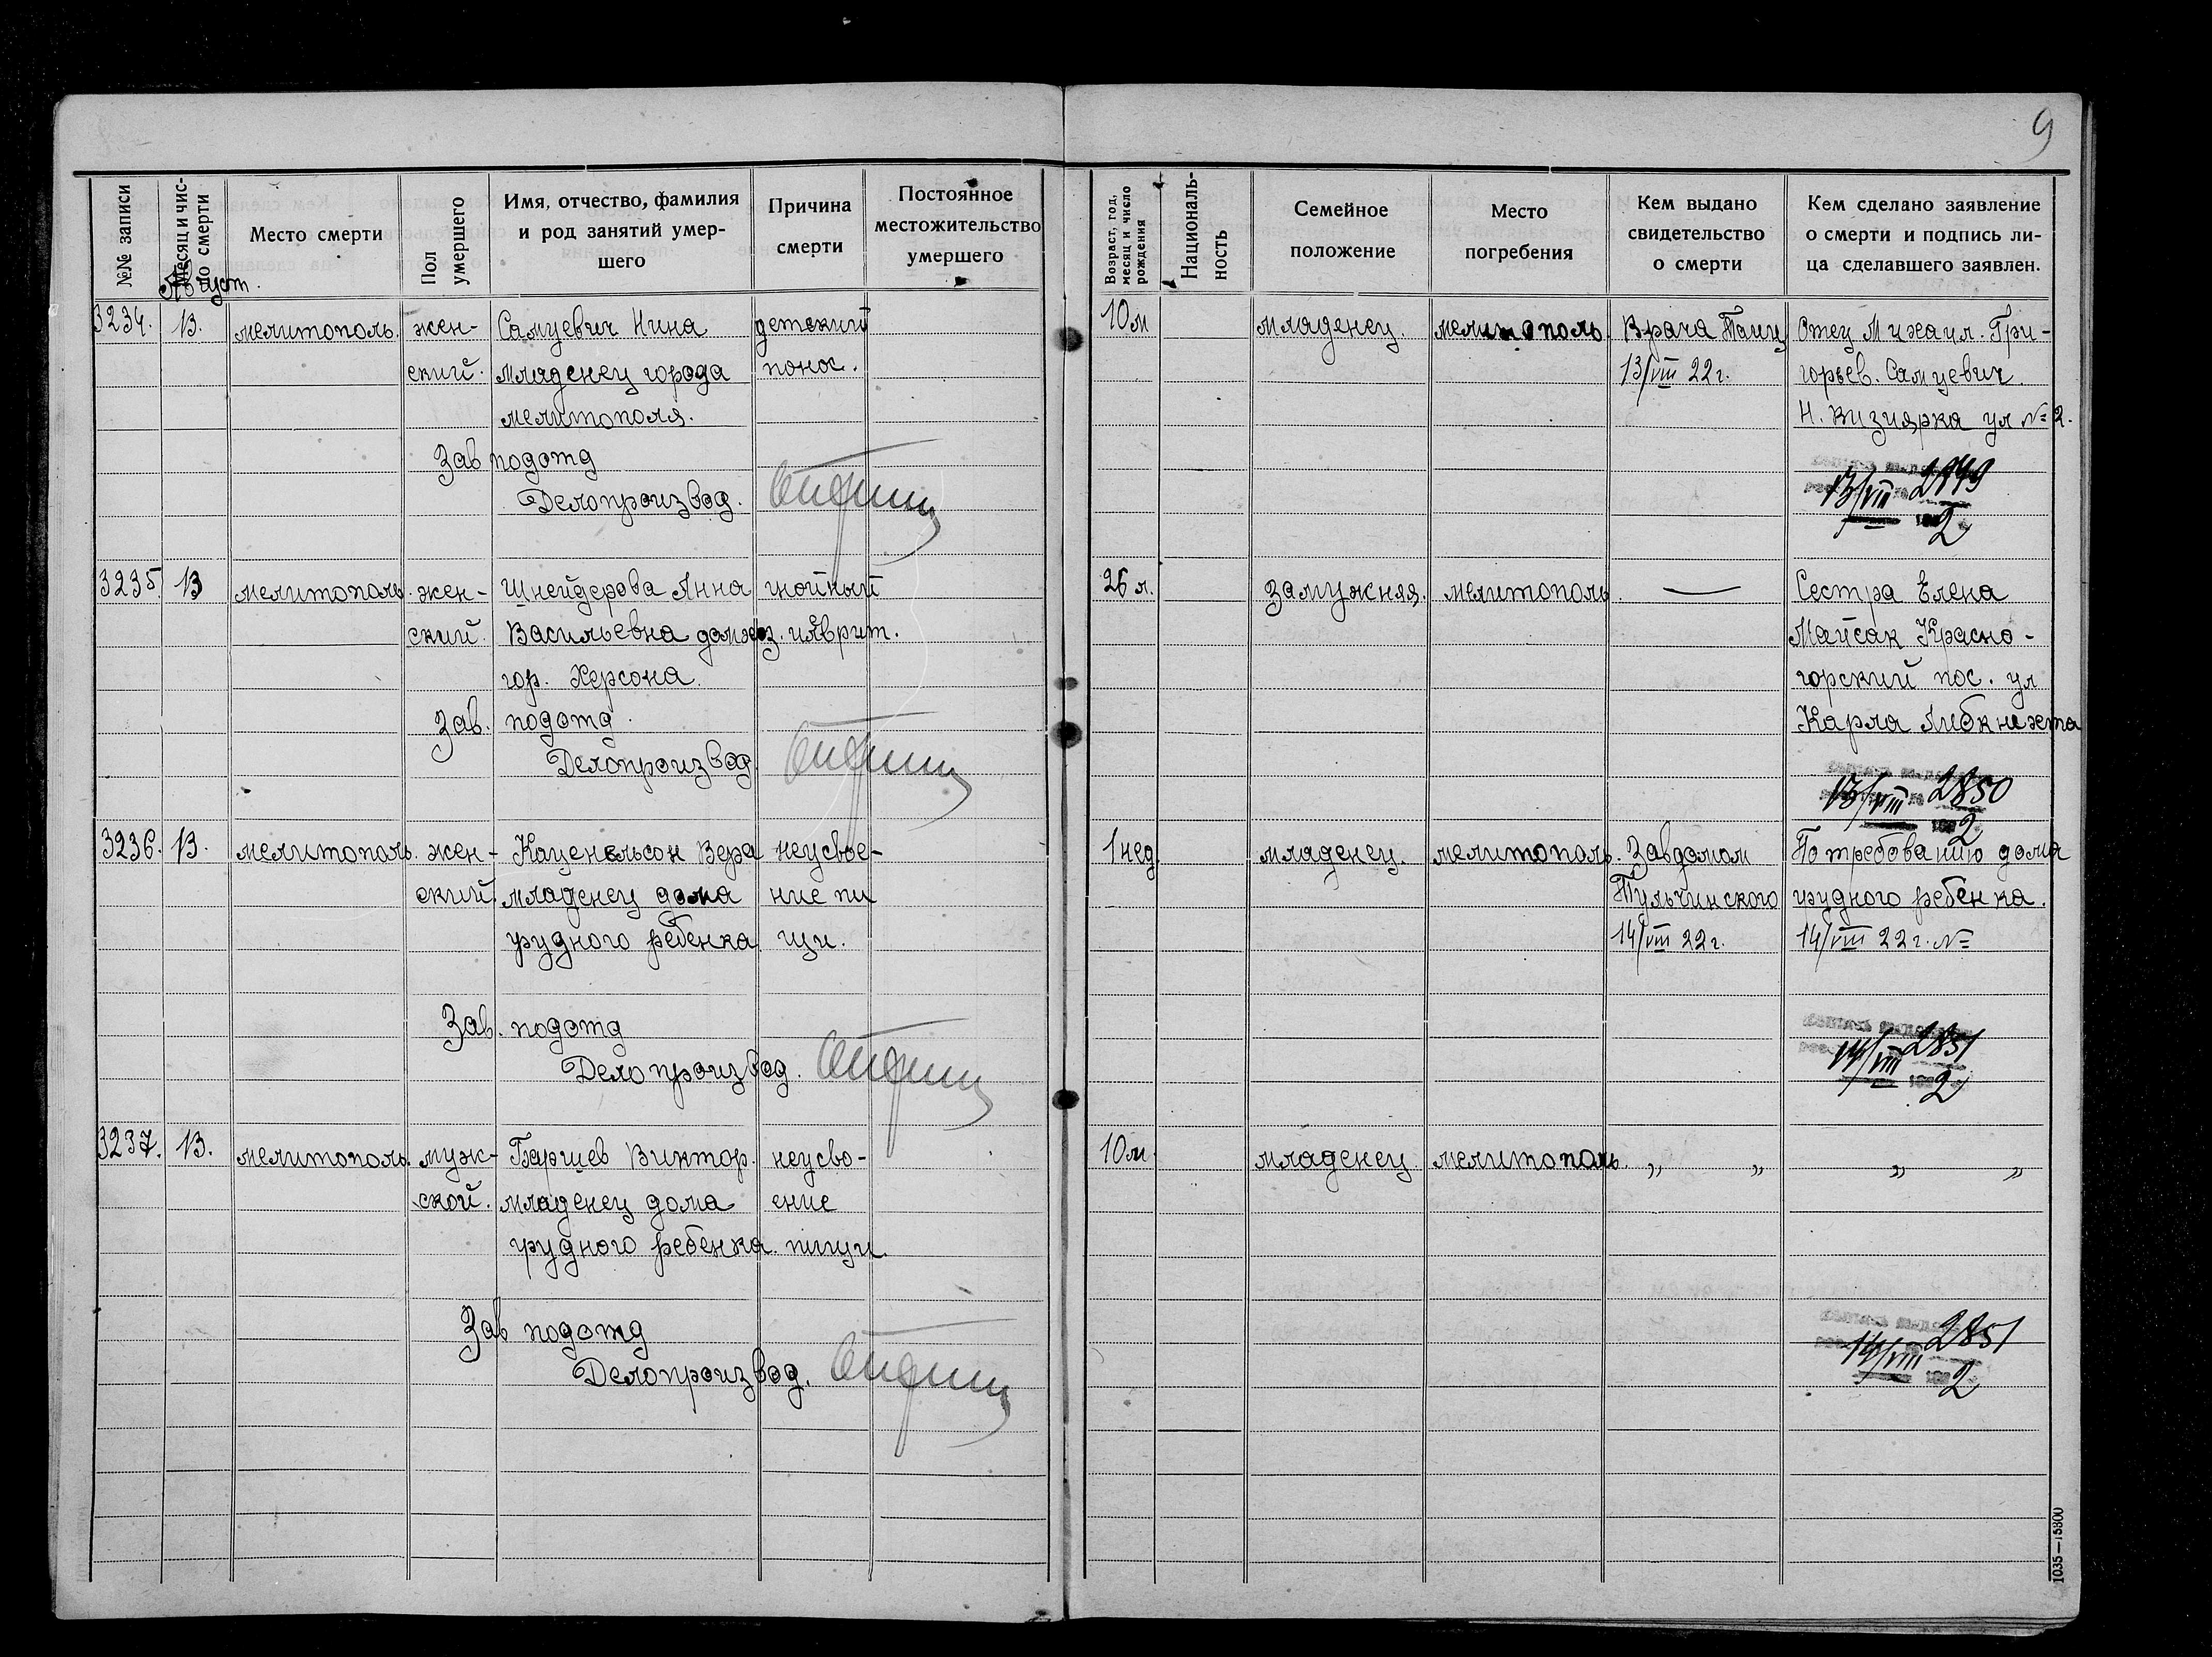 9
№№ записи
Месяц и чис-
ло смерти
Место смерти
Пол
умершего
Имя, отчество, фамилия
и род занятий умер-
шего
Причина
смерти
Постоянное
местожительство
умершего
Возраст, год,
месяц и число
рождения
Националь-
ность
Семейное
положение
Место
погребения
Кем выдано
свидетельство
о смерти
Кем сделано заявление
о смерти и подпись ли-
ца сделавшего заявлен.
Август.
3234. 13. мелитополь. жен- Самуевич Нина детский 10м младенец. мелитополь Врача Танц Отец Михаил. Гри-
ский. младенец города понос. 13/VIII 22г. горьев. Самуевич.
мелитополя. Н. Кизиярка ул № 2.
Зав подотд
Делопроизвод.
13/VIII 2849
2
3235. 13 мелитополь. жен- Шнейдерова Анна гнойный 26 л. замужняя. мелитополь. — Сестра Елена
ский. Васильевна домхоз. плеврит. Майсак Красно-
гор. Херсона. горский пос. ул
Зав. подотд. Карла Либкнехта
Делопроизвод.
13/VIII 2850
2
3236. 13. мелитополь. жен- Каценельсон Вера неусвое- 1 нед. младенец. мелитополь. Завдомом По требованию дома
ский. младенец дома ние пи Тульчинского грудного ребенка.
грудного ребенка. щи. 14/VIII 22г. 14/VIII 22г. №
Зав. подотд
Делопроизвод.
14/VIII 2851
2
3237. 13. мелитополь. муж- Баршев Виктор. неусво- 10м. младенец. мелитополь. „ „ „ „
ской. младенец дома ение
грудного ребенка. пищи.
Зав подотд
Делопроизвод.
14/VIII 2851
2
1035—15800